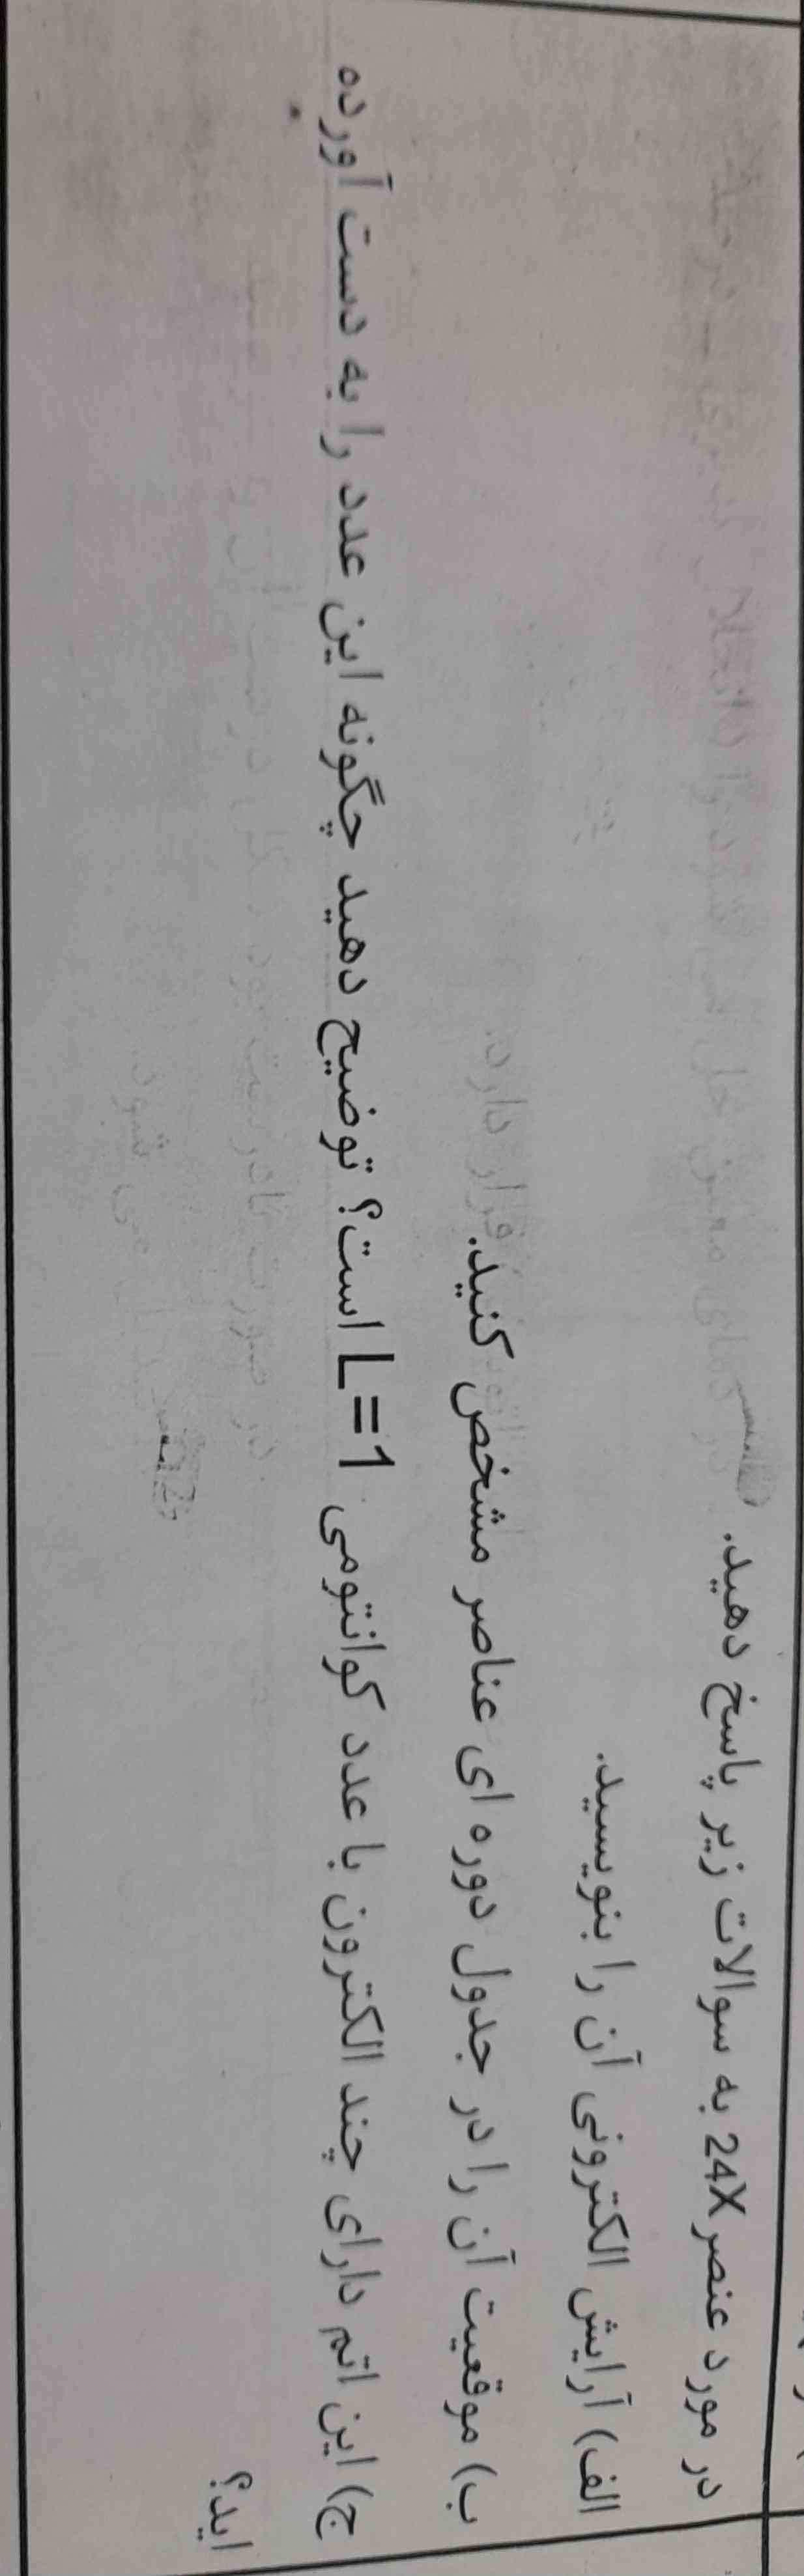 در مورد عنصر 24X به سوالات زیر پاسخ دهید.
الف) آرایش الکترونی آن را بنویسید.
ب) موقعیت آن را در جدول دوره ای عناصر مشخص کنید.
ج) این اتم دارای چند الکترون با عدد کوانتومی L=1 است؟ توضیح دهید چگونه این عدد را به دست آورده
اید؟